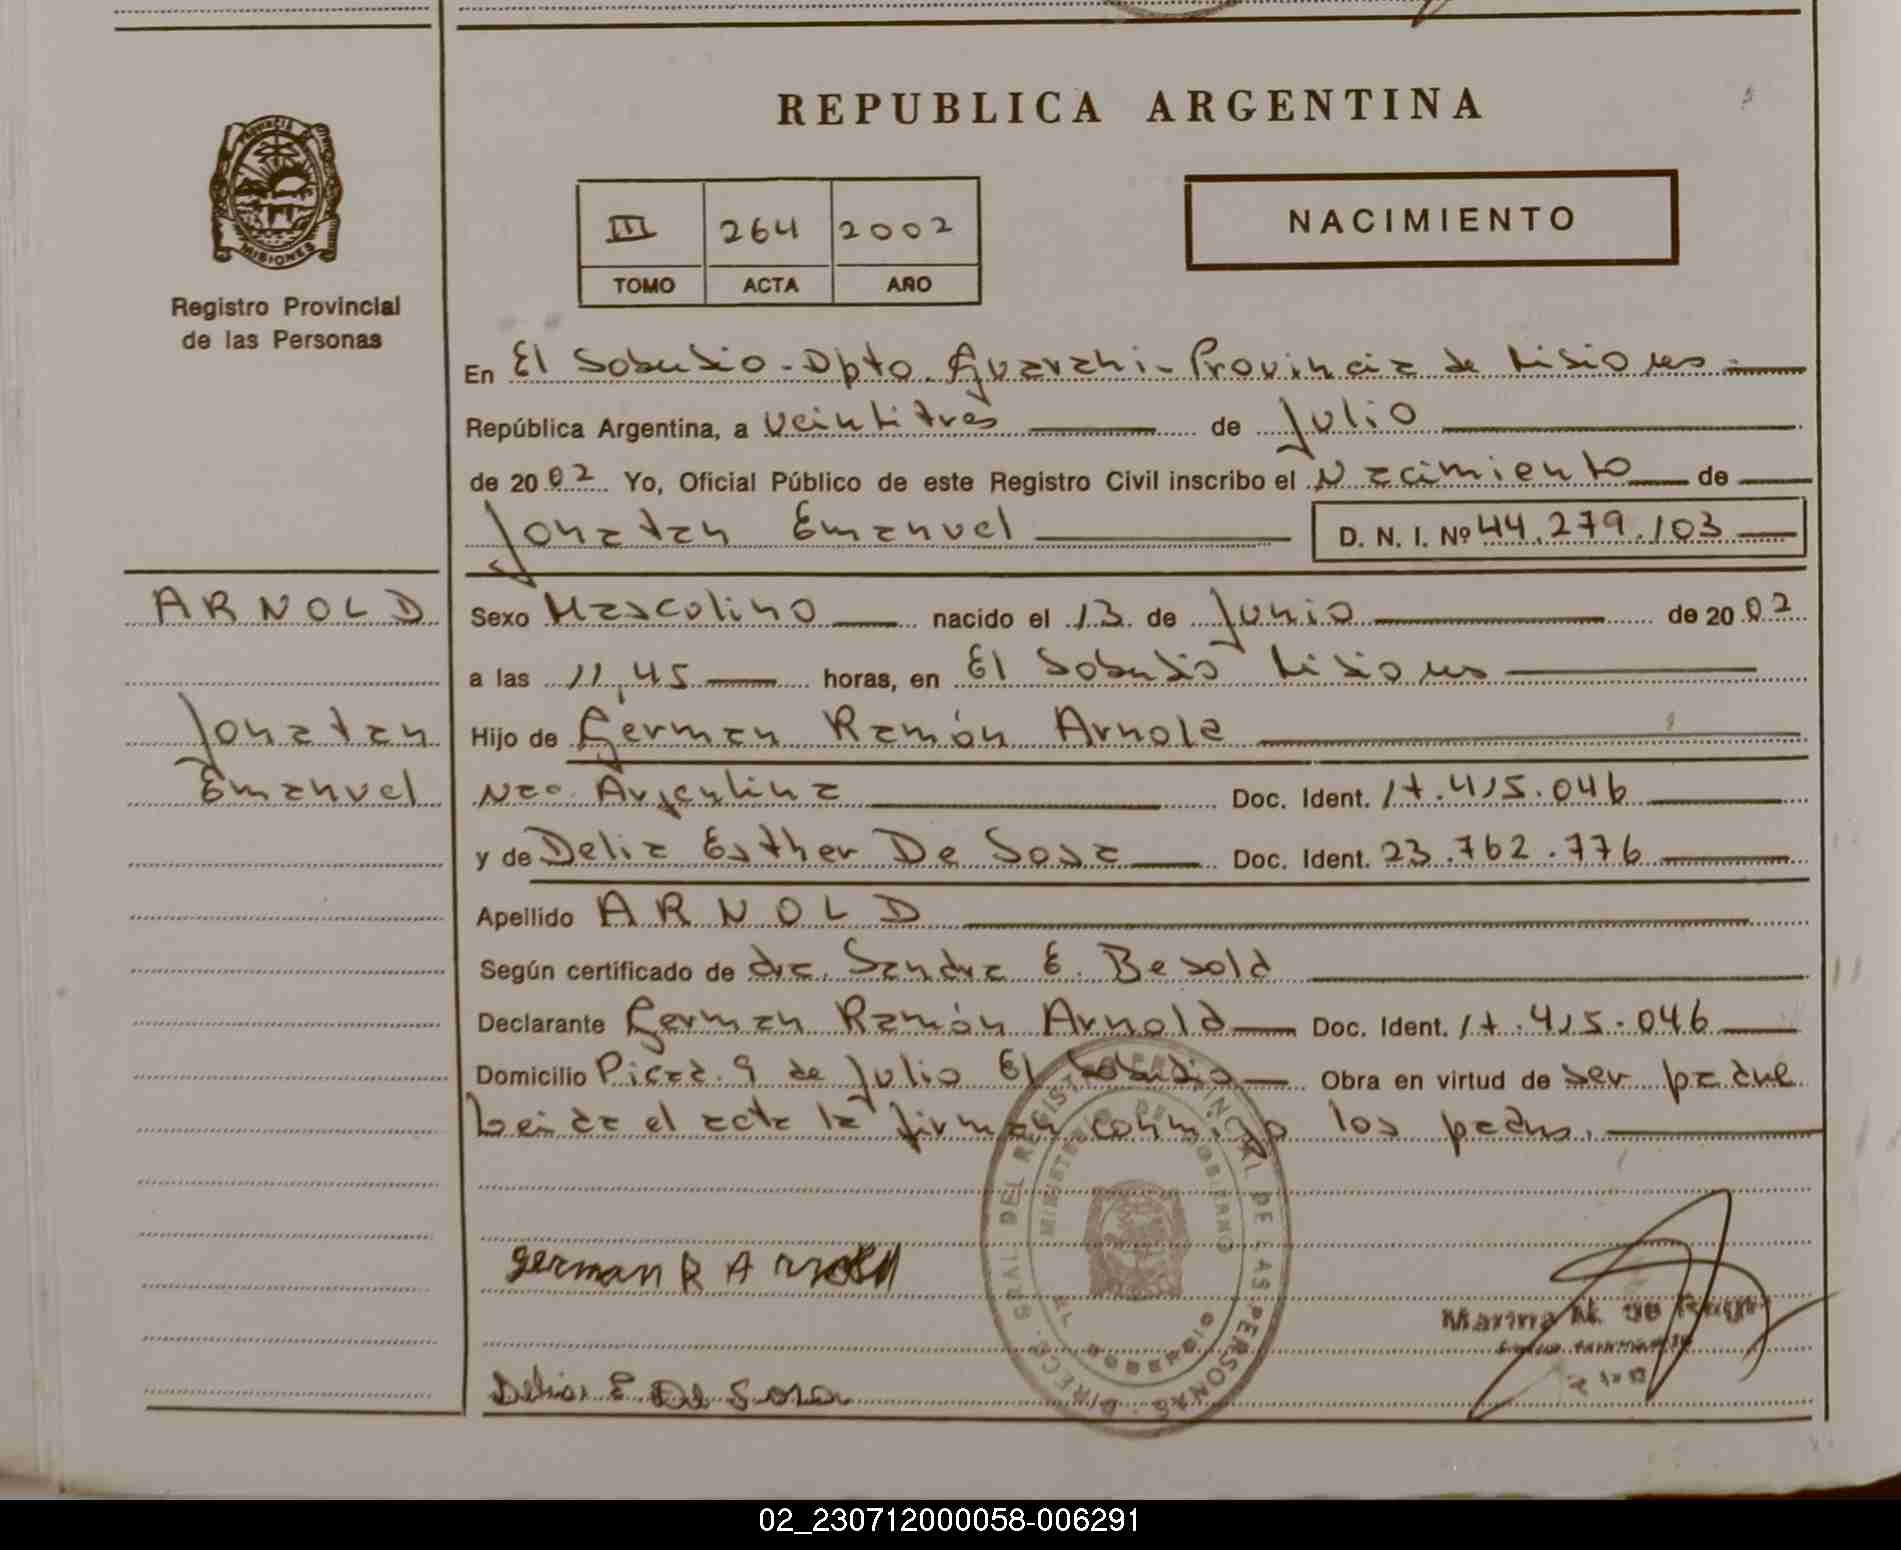 REPUBLICA ARGENTINA
PROVINCIA DE MISIONES
Registro Provincial
de las Personas
III 264 2002
TOMO ACTA AÑO
NACIMIENTO
En El Soberbio - Dpto. Guarani - Provincia de Misiones -
República Argentina, a veintitres de Julio
de 2002 Yo, Oficial Público de este Registro Civil inscribo el Nacimiento de
Jonatan Emanuel D. N. I. Nº 44.279.103
ARNOLD
Jonatan
Emanuel
Sexo Mascolino nacido el 13 de Junio de 2002
a las 11,45 horas, en El Soberbio Misiones
Hijo de German Ramón Arnold
Nac. Argentina Doc. Ident. 17.415.046
y de Delia Esther De Sosa Doc. Ident. 23.762.776
Apellido ARNOLD
Según certificado de dra. Sandra E. Besold
Declarante German Ramón Arnold Doc. Ident. 17.415.046
Domicilio Picad. 9 de Julio El Soberbio Obra en virtud de ser padre
Leida el acta la firman conmigo los padres.
DIRECC. GRAL. DEL REGISTRO PROVINCIAL DE LAS PERSONAS
MINISTERIO DE GOBIERNO
german R Arnold
Delia E De Sosa
Marina N. de
02_230712000058-006291